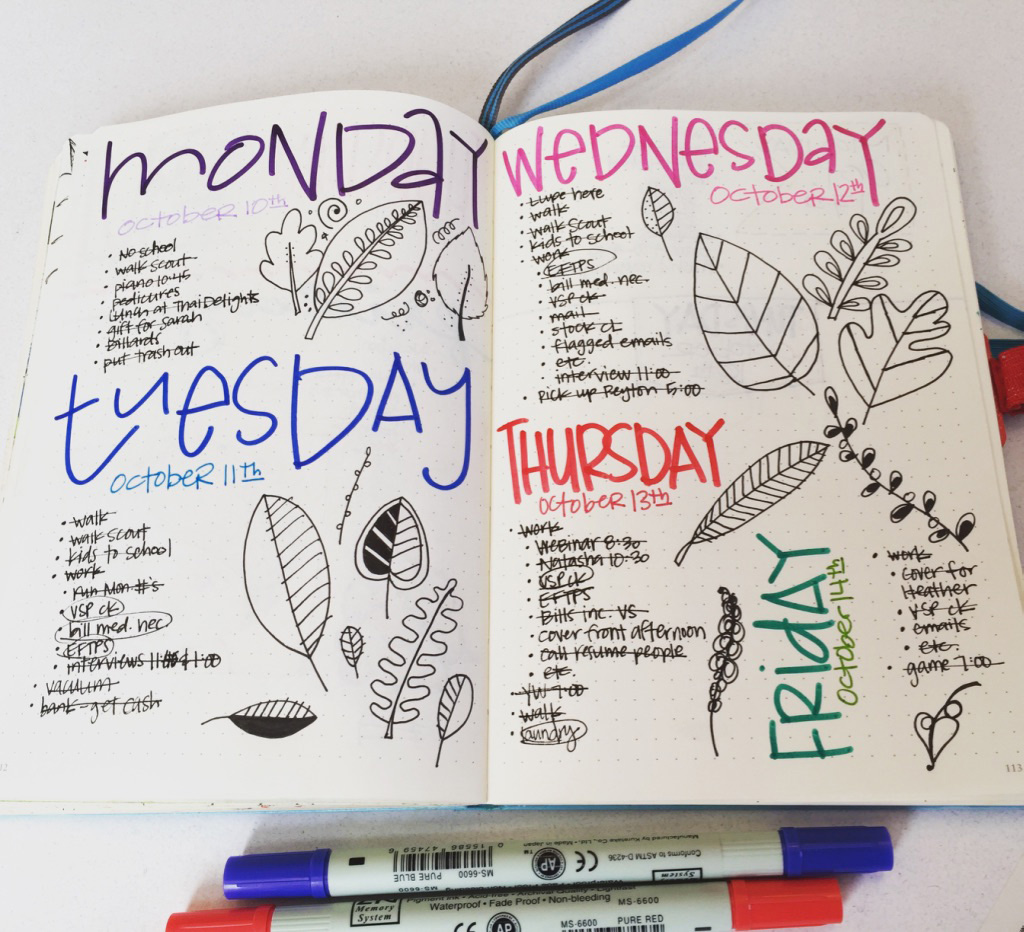 MONDAY
OCTOBER 10th
• No school
• walk scout
• piano 10:45
• Pedicures
• Lunch at Thai Delights
• gift for Sarah
• Billards
• put trash out
TUESDAY
OCTOBER 11th
• walk
• walk scout
• kids to school
• work
• run Mon #'s
• VSP ck
• bill med. nec
• EFTPS
• interviews 11:00 & 1:00
• vacuum
• bank - get cash
112
WEDNESDAY
OCTOBER 12th
• Lupe here
• walk
• walk Scout
• kids to school
• work
• EFTPS
• bill med. nec.
• VSP ck
• mail
• stock CL
• flagged emails
• etc.
• interview 11:00
• pick up Peyton 5:00
THURSDAY
OCTOBER 13th
• work
• Webinar 8:30
• Natasha 10:30
• VSP ck
• EFTPS
• Bills inc. VS
• cover front afternoon
• call resume people
• etc.
• YW 7:00
• walk
• laundry
FRIDAY
OCTOBER 14th
• work
• cover for
Heather
• VSP ck
• emails
• etc.
• game 7:00
113
MS-6600 PURE BLUE
0 15586 47459 6
AP
CE
Manufactured by Kuretake Co., Ltd. • Made in Japan
Conforms to ASTM D-4236
System
Waterproof • Fade Proof • Non-bleeding
Memory
System
CE
AP
MS-6600
MS-6600 PURE RED